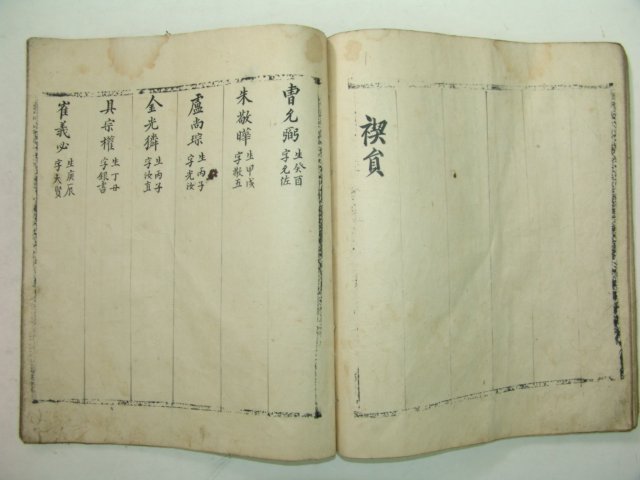 禊員
曺允弼 生癸酉 字允佐
朱敬曄 生甲戌 字敬五
盧尙琮 生丙子 字光汝
金光獜 生丙子 字汝直
具宗權 生丁丑 字銀書
崔義必 生庚辰 字天賢